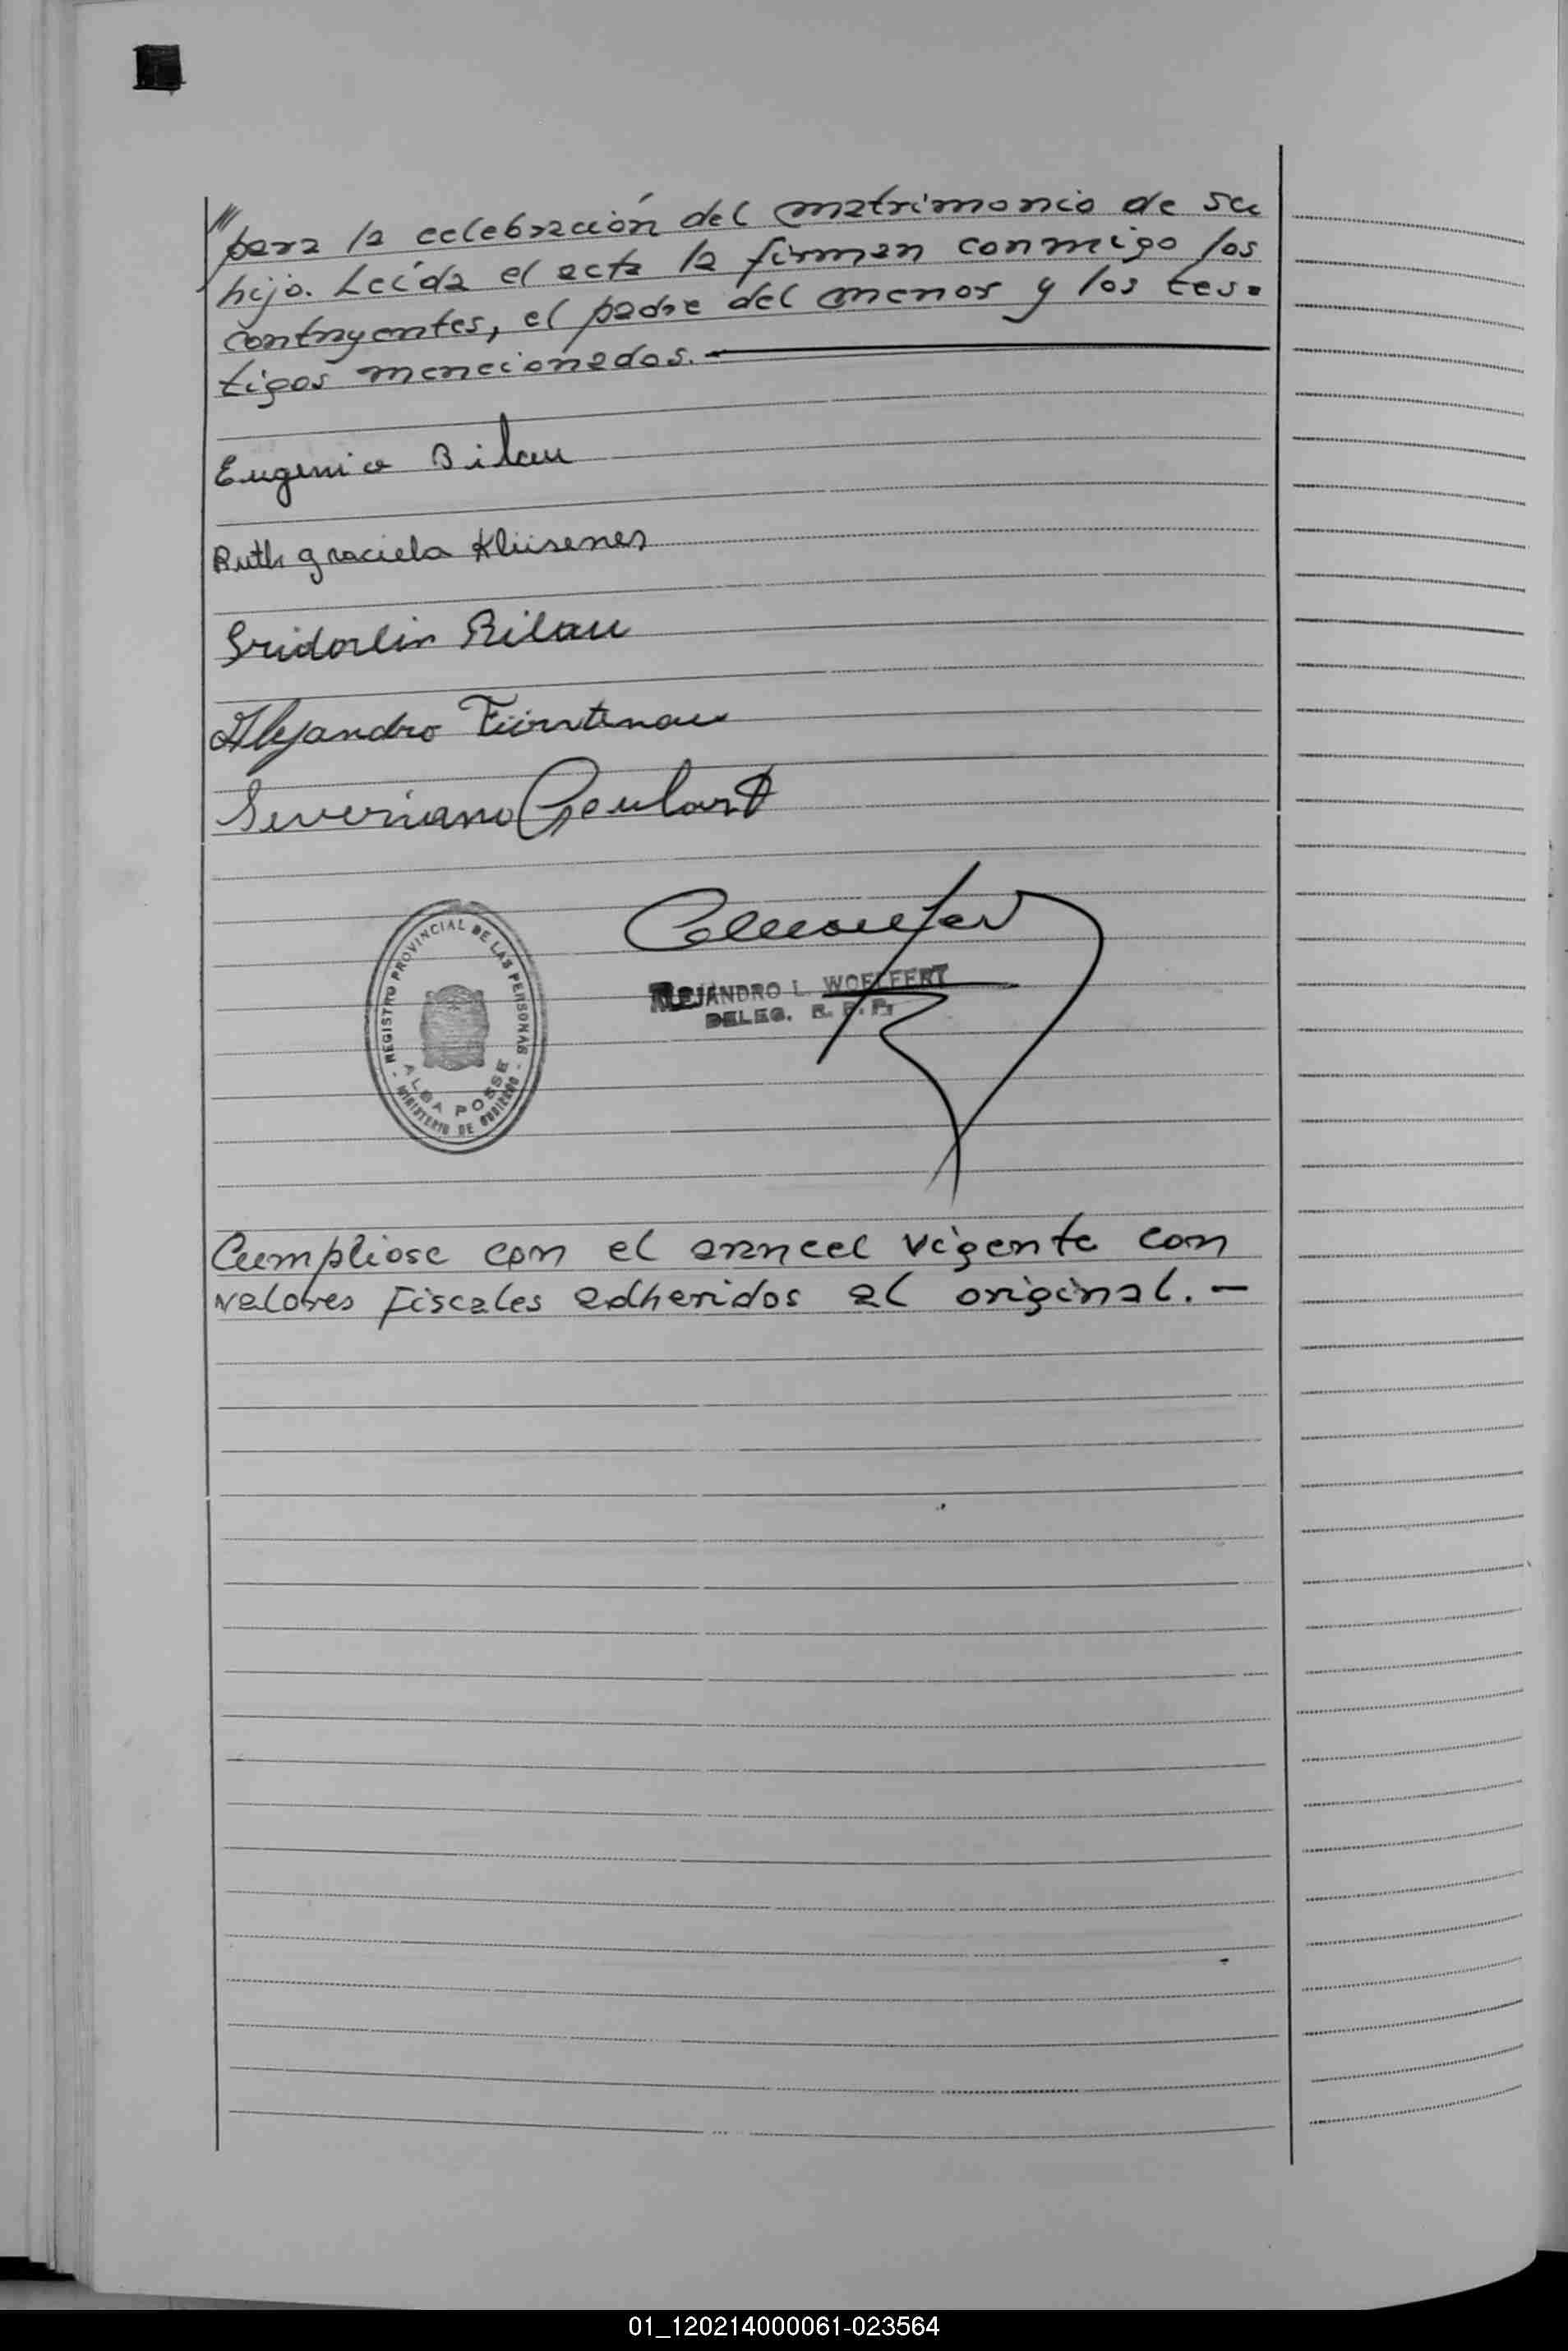 // para la celebración del matrimonio de su
hijo. Leída el acta la firman conmigo los
contrayentes, el padre del menor y los tes=
tigos mencionados.
Eugenio Bilau
Ruth graciela Klüsener
Fridolin Bilau
Alejandro Fürstenau
Severiano Goulart
REGISTRO PROVINCIAL DE LAS PERSONAS
ALBA POSSE
MINISTERIO DE GOBIERNO
ALEJANDRO L. WOELFERT
DELEG. R. P. P.
Cumpliose con el arancel vigente con
valores fiscales adheridos al original. —
01_120214000061-023564